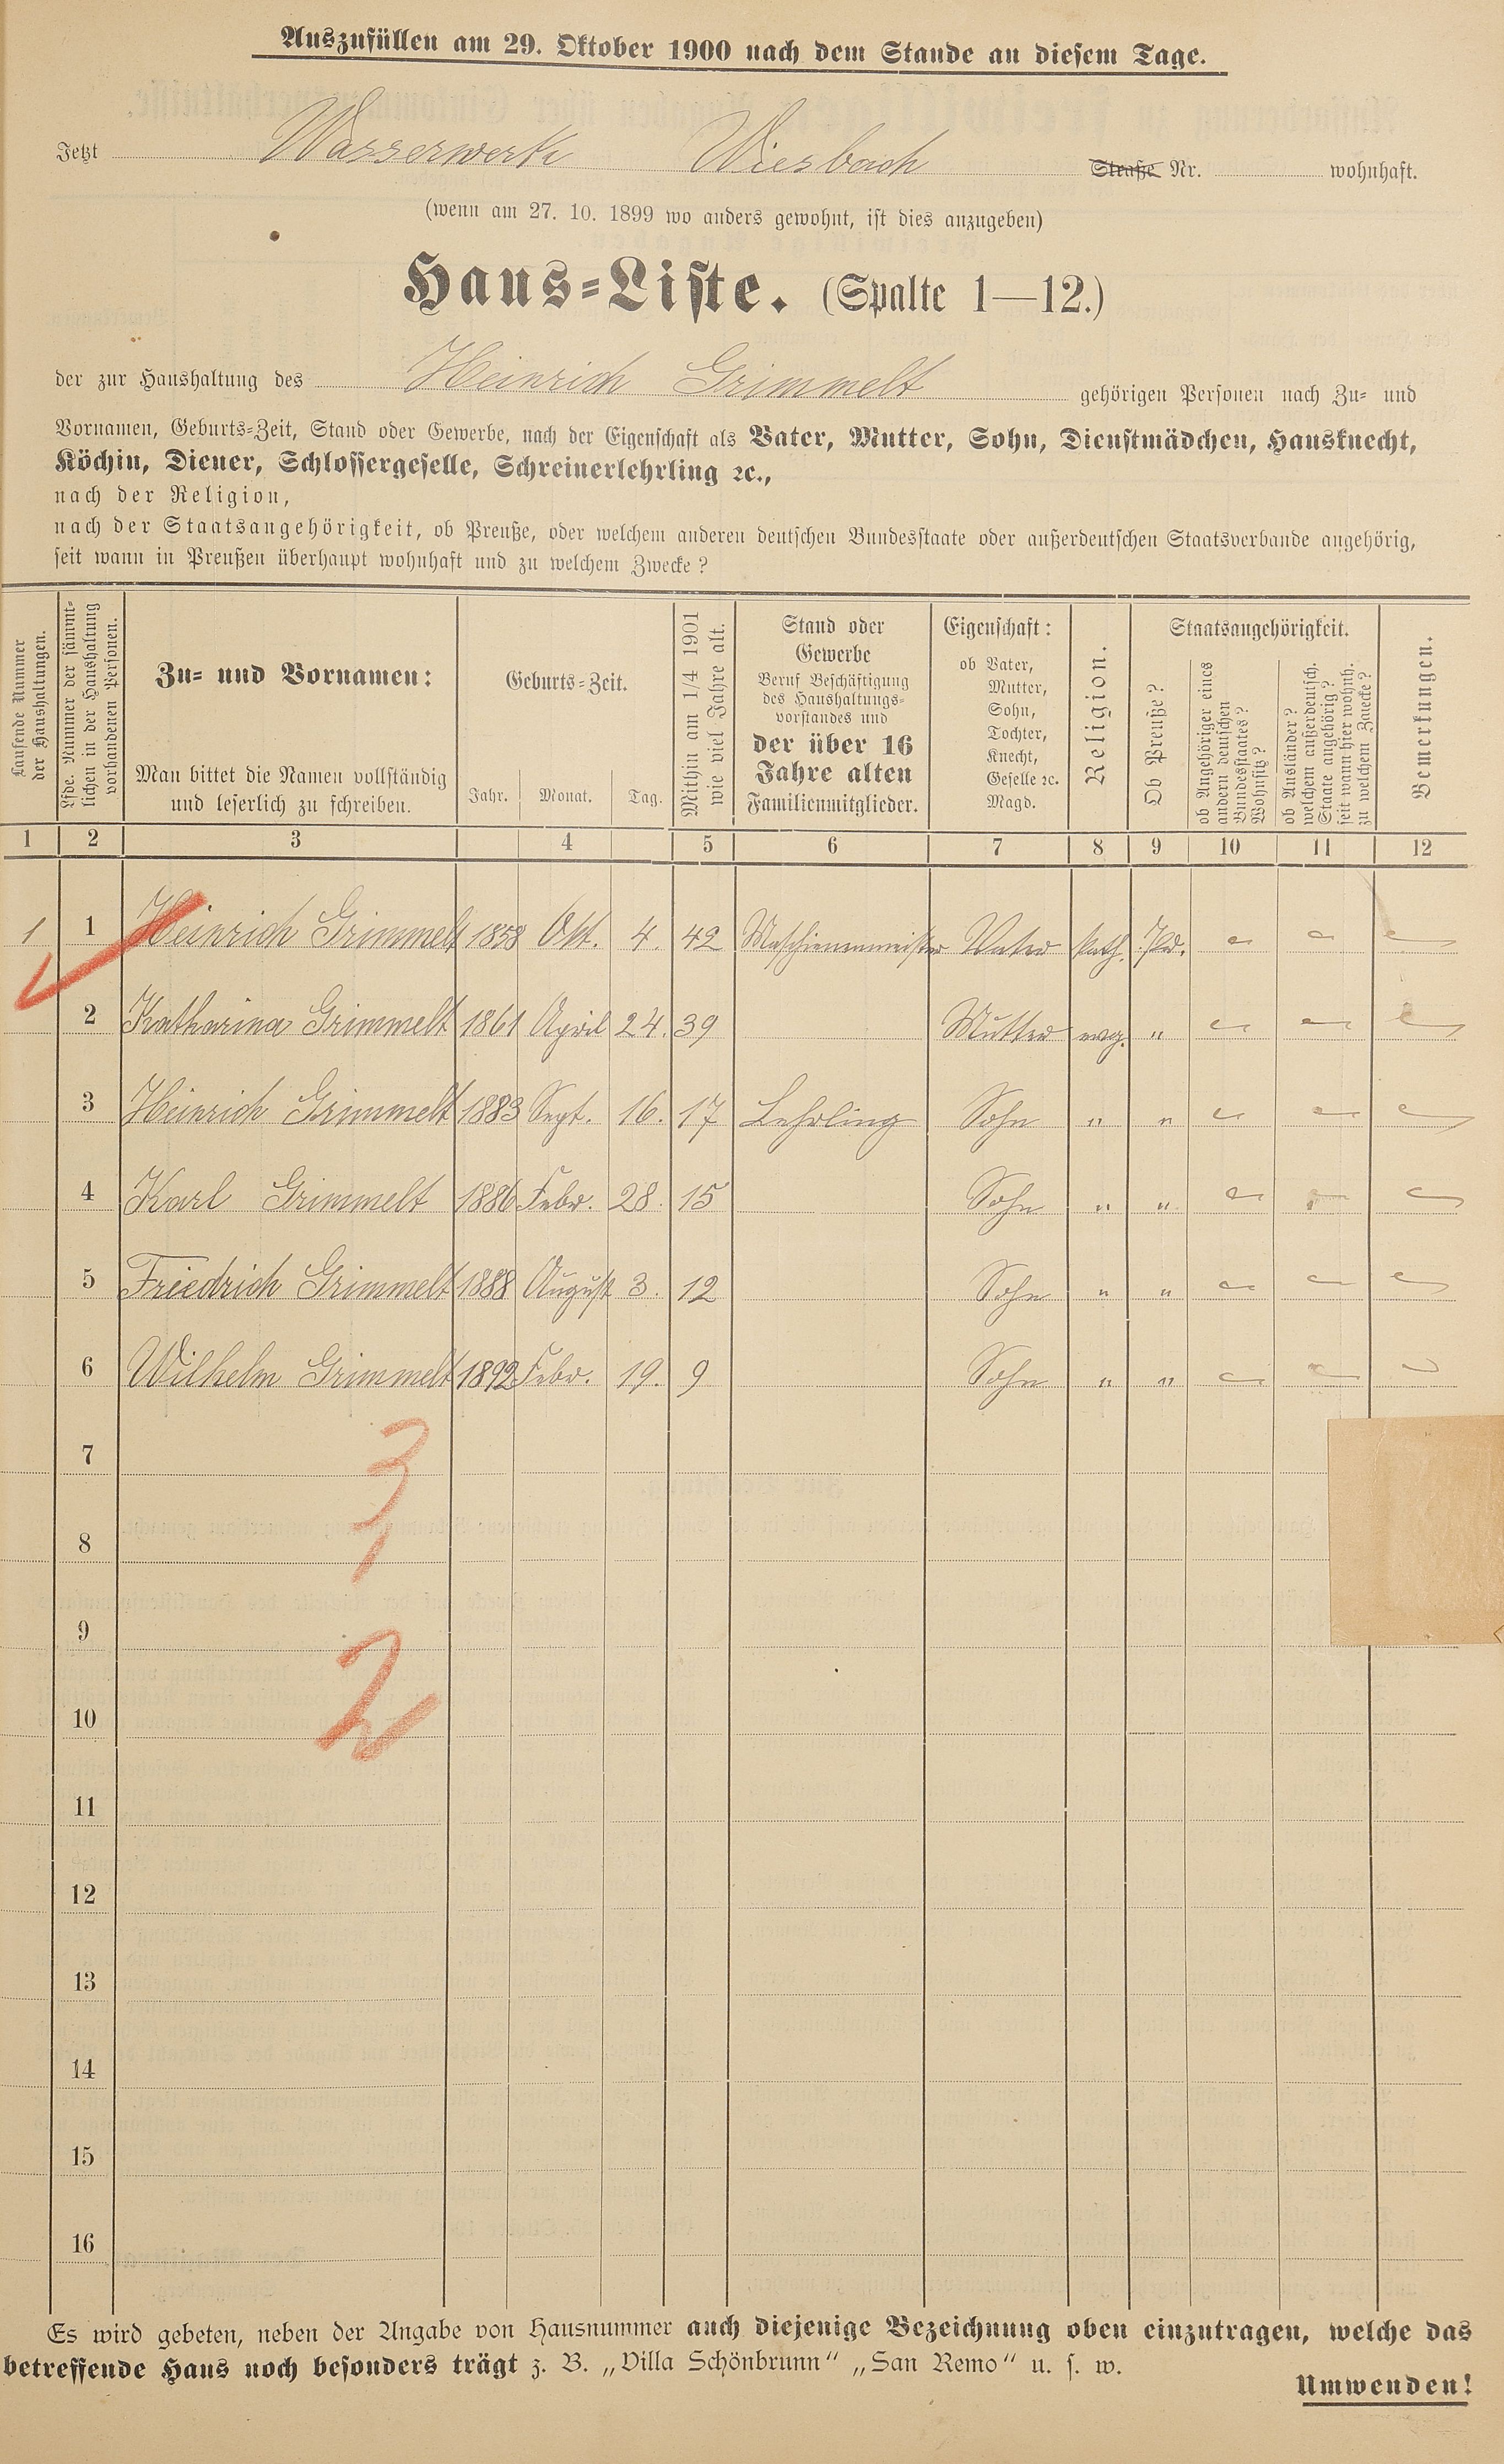 Auszufüllen am 29. Oktober 1900 nach dem Stande an diesem Tage.
Jetzt Wasserwerk Wiesbach Straße Nr. wohnhaft.
(wenn am 27. 10. 1899 wo anders gewohnt, ist dies anzugeben)
Haus-Liste. (Spalte 1—12.)
der zur Haushaltung des Heinrich Grimmelt gehörigen Personen nach Zu- und
Vornamen, Geburts-Zeit, Stand oder Gewerbe, nach der Eigenschaft als Vater, Mutter, Sohn, Dienstmädchen, Hausknecht,
Köchin, Diener, Schlossergeselle, Schreinerlehrling ꝛc.,
nach der Religion,
nach der Staatsangehörigkeit, ob Preuße, oder welchem anderen deutschen Bundesstaate oder außerdeutschen Staatsverbande angehörig,
seit wann in Preußen überhaupt wohnhaft und zu welchem Zwecke?
Laufende Nummer
der Haushaltungen.
Lfde. Nummer der sämmt-
lichen in der Haushaltung
vorhandenen Personen.
Zu- und Vornamen:
Man bittet die Namen vollständig
und leserlich zu schreiben.
Geburts-Zeit.
Jahr. Monat. Tag.
Mithin am 1/4 1901
wie viel Jahre alt.
Stand oder
Gewerbe
Beruf Beschäftigung
des Haushaltungs-
vorstandes und
der über 16
Jahre alten
Familienmitglieder.
Eigenschaft:
ob Vater,
Mutter,
Sohn,
Tochter,
Knecht,
Geselle ꝛc.
Magd.
Religion.
Staatsangehörigkeit.
Ob Preuße?
ob Angehöriger eines
andern deutschen
Bundesstaates?
Wohnsitz?
ob Ausländer?
welchem außerdeutsch.
Staate angehörig?
seit wann hier wohnh.
zu welchem Zwecke?
Bemerkungen.
1 2 3 4 5 6 7 8 9 10 11 12
1 1 Heinrich Grimmelt 1858 Okt. 4. 42 Maschienenmeister Vater kath. Pr.
2 Katharina Grimmelt 1861 April 24. 39 Mutter evg. "
3 Heinrich Grimmelt 1883 Sept. 16. 17 Lehrling Sohn " "
4 Karl Grimmelt 1886 Febr. 28. 15 Sohn " "
5 Friedrich Grimmelt 1888 August 3. 12 Sohn " "
6 Wilhelm Grimmelt 1892 Febr. 19. 9 Sohn " "
7 3
8 1
9
10 2
11
12
13
14
15
16
Es wird gebeten, neben der Angabe von Hausnummer auch diejenige Bezeichnung oben einzutragen, welche das
betreffende Haus noch besonders trägt z. B. „Villa Schönbrunn“ „San Remo“ u. s. w.
Umwenden!